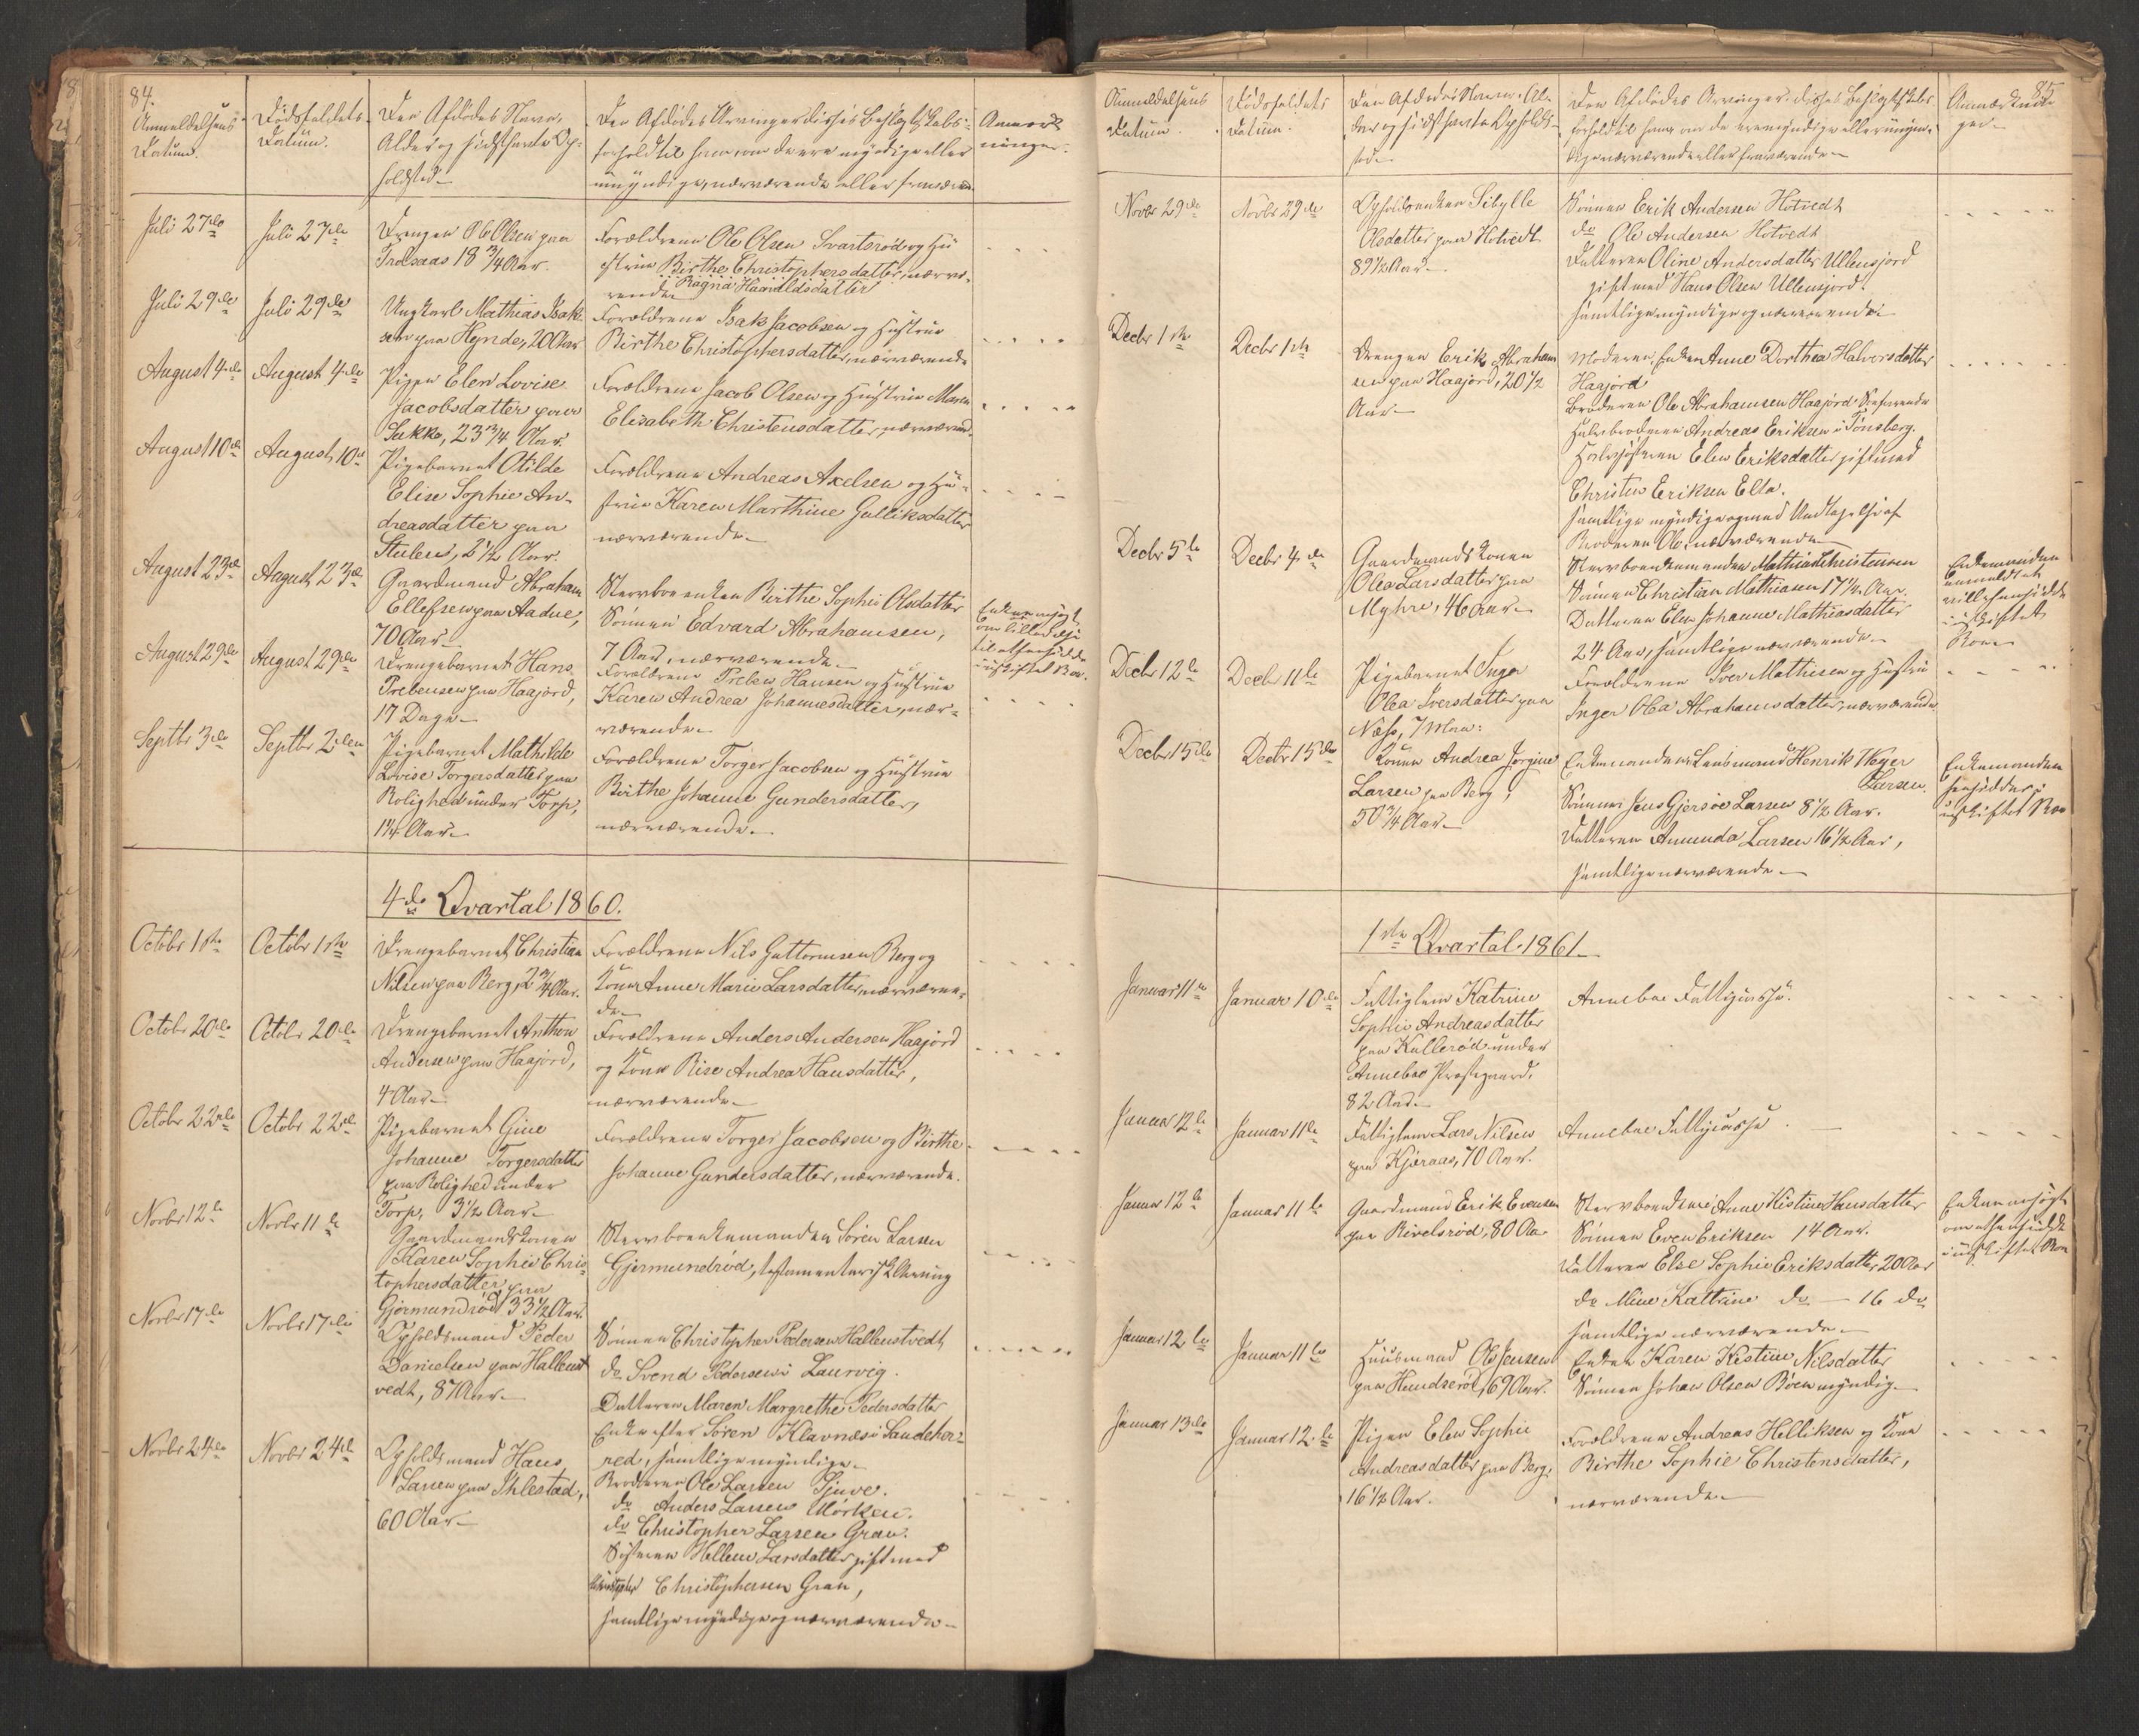 84.
Anmeldelsens
Datum.
Dødsfaldets
Datum.
Den Afdødes Navn,
Alder og sidst havte Op-
holdsted
Den Afdødes Arvinger disses Beslegtskabs-
forhold til ham, om de ere myndige eller
umyndige, nærværende eller fraværende
Anmærk
ninger.
Juli 27de
Juli 27de
Drengen Ole Olsen paa
18 3/4 Aar.
Forældrene Ole Olsen Svartsrød og Hu
strue Birthe Christophersdatter, nærvæ-
Ragna Haraldsdatter
rende
Juli 29de
Juli 29de
Ungkarl Mathias Isak
sen paa Hynde, 20 Aar
Forældrene Isak Jacobsen og Hustrue
Birthe Christophersdatter, nærværende
August 4de
August 4de
Pigen Elen Lovise
Jacobsdatter paa
Sukke, 23 3/4 Aar.
Forældrene Jacob Olsen og Hustrue Maren
Elisabeth Christensdatter, nærværend.
August 10de
August 10de
Pigebarnet Otilde
Elise Sophie An-
dreasdatter paa
Stulen, 2 1/2 Aar.
Forældrene Andreas Axelsen og Hu-
strue Karen Marthine Gulliksdatter
nærværende
August 23de
August 23de
Gaardmand Abraham
Ellefsen paa Aadne,
70 Aar
Stervboenken Birthe Sophie Olsdatter
Sønnen Edvard Abrahamsen,
7 Aar, nærværende
Enken ansøgt
om Tilladelse
til at hensidde
i uskiftet Bo.
August 29de
August 29de
Drengebarnet Hans
Prebensen paa Haajord,
17 Dage
Forældrene Preben Hansen og Hustrue
Karen Andrea Johannesdatter, nær-
værende
Septbr 3de
Septbr 2den
Pigebarnet Mathilde
Lovise Torgersdatter paa
Rolighed under Torp,
1 1/4 Aar
Forældrene Torger Jacobsen og Hustrue
Birthe Johanne Gundersdatter,
nærværende
4de Qvartal 1860.
Octobr 1ste
Octobr 1ste
Drengebarnet Christian
Nilsen paa Berg, 2 3/4 Aar.
Forældrene Nils Guttormsen Berg og
Kone Anne Marie Larsdatter, nærværen-
de
Octobr 20de
Octobr 20de
Drengebarnet Anthon
Andersen paa Haajord,
4 Aar
Forældrene Anders Andersen Haajord
og Kone Rise Andrea Hansdatter,
nærværende
Octobr 22de
Octobr 22de
Pigebarnet Gine
Johanne Torgersdatter
paa Rolighed under
Torp, 3 1/2 Aar
Forældrene Torger Jacobsen og Birthe
Johanne Gundersdatter, nærværende.
Novbr 12de
Novbr 11de
Gaardmandskonen
Karen Sophie Chris-
tophersdatter paa
Gjermundrød 33 1/2 Aar.
Stervboenkemanden Søren Larsen
Gjermundrød, testamentarisk Arving
Novbr 17de
Novbr 17de
Opholdsmand Peder
Danielsen paa Hallenst
vedt, 87 Aar
Sønnen Christopher Pedersen Hallenstvedt
do Svend Pedersen i Laurvig.
Datteren Maren Margrethe Pedersdatter
Enke efter Søren Klavnæs i Sandeher-
red, samtlige myndige
Novbr 24de
Novbr 24de
Opholdsmand Hans
Larsen paa Ihlestad,
60 Aar
Broderen Ole Larsen Sjuve.
do Anders Larsen Mørken.
do Christopher Larsen Gran.
Søsteren Hellene Larsdatter gift med
Christopher Christophersen Gran,
samtlige myndige og nærværende
85
Anmeldelsens
Datum.
Dødsfaldets
Datum.
Den Afdødes Navn, Al-
der og sidst havte Opholds-
sted
Den Afdødes Arvinger, disses Beslegtskabs-
forhold til ham om de ere myndige eller umyn-
dige nærværende eller fraværende
Anmærknin
ger
Novbr 29de
Novbr 29de
Opholdsenken Sibylle
Olsdatter paa Hotvedt
89 1/2 Aar
Sønnen Erik Andersen Hotvedt
do Ole Andersen Hotvedt
Datteren Oline Andersdatter Ullensjord
gift med Hans Olsen Ullensjord.
samtlige myndige og nærværende
Decbr 1ste
Decbr 1ste
Drengen Erik Abraham
sen paa Haajord, 20 1/2
Aar
Moderen, Enken Anne Dorthea Halvorsdatter
Haajord
Broderen Ole Abrahamsen Haajord Søefarende
Halvbroderen Andreas Eriksen i Tønsberg.
Halvsøsteren Elen Eriksdatter gift med
Christen Eriksen Ello.
samtlige myndige og med Undtagelse af
Broderen Ole, nærværende
Decbr 5te
Decbr 4de
Gaardmandskonen
Olea Larsdatter paa
Myhre, 46 Aar
Stervboenkemanden Mathias Christensen
Sønnen Christian Mathiasen 17 1/2 Aar.
Datteren Elen Johanne Mathiasdatter
24 Aar, samtlige nærværende
Enkemanden
anmeldt at
ville hensidde
i uskiftet
Boe
Decbr 12te
Decbr 11te
Pigebarnet Inga
Olea Iversdatter paa
Næss, 7 Mdr.
Forældrene Iver Mathisen og Hustru
Inger Olea Abrahamsdatter, nærværende
Decbr 15de
Decbr 15de
Konen Andrea Jorgine
Larsen paa Berg,
50 3/4 Aar
Enkemanden Lensmand Henrik Weyer
Larsen.
Sønnen Jens Gjersøe Larsen 8 1/2 Aar.
Datteren Amunda Larsen 16 1/2 Aar,
samtlige nærværende
Enkemanden
hensidder i
uskiftet Boe
1ste Qvartal 1861
Januar 11te
Januar 10de
Fattiglem Katrine
Sophie Andreasdatter
paa Kullerød under
Annebøe Præstegaard.
82 Aar
Annebøe Fattigcasse.
Januar 12te
Januar 11te
Fattiglem Lars Nilsen
paa Kjæraas, 70 Aar.
Annebøe Fattigcasse.
Januar 12te
Januar 11te
Gaardmand Erik Evensen
paa Rivelsrød, 80 Aar
Stervboenken Anne Kistine Hansdatter
Sønnen Even Eriksen 14 Aar.
Datteren Else Sophie Eriksdatter 20 Aar
do Mine Kattrine do — 16 do
samtlige nærværende
Enken ansøgt
om at hensidde
i uskiftet Boe
Januar 12te
Januar 11te
Huusmand Ole Jensen
paa Hundserød, 69 Aar.
Enken Karen Kistine Nilsdatter
Sønnen Johan Olsen Bøen myndig
Januar 13de
Januar 12te
Pigen Elen Sophie
Andreasdatter paa Berg,
16 1/2 Aar.
Forældrene Andreas Helliksen og Kone
Birthe Sophie Christensdatter,
nærværende